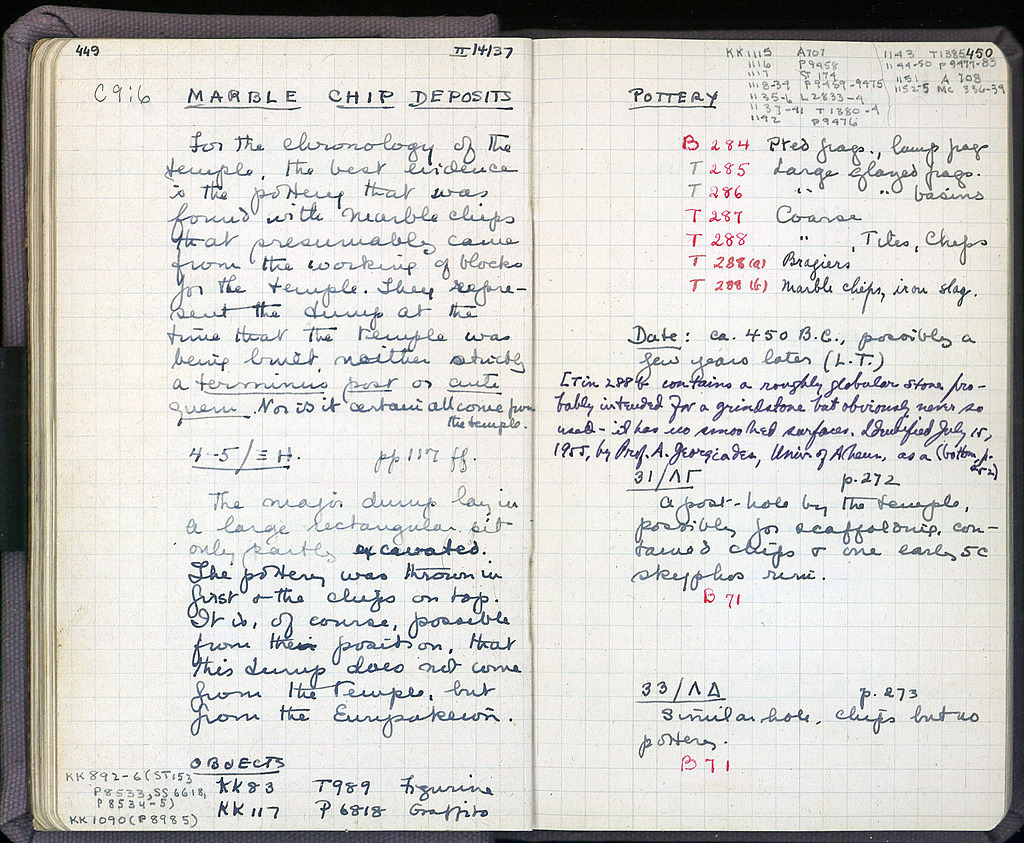 449
II/14/37
C 9:6 MARBLE CHIP DEPOSITS
For the chronology of the
temple, the best evidence
is the pottery that was
found with marble chips
that presumably came
from the working of blocks
for the temple. They repre-
sent the dump at the
time that the temple was
being built, neither strictly
a terminus post or ante
quem. Nor is it certain all come from
the temple.
4-5/Ξ H. pp 117 ff.
The major dump lay in
a large rectangular pit
only partly excavated.
The pottery was thrown in
first & the chips on top.
It is, of course, possible
from their position, that
this dump does not come
from the temple, but
from the Eurysakeion.
OBJECTS
KK83 T989 Figurine
KK117 P 6818 Graffito
KK892-6 (ST153
P8533, SS6618,
P8534-5)
KK1090 (P8985)
450
KK1115 A707
1116 P9458
1117 ST 174
1118-34 P9459-9475
1135-6 L2833-4
1137-41 T1380-4
1142 P9476
1143 T1385
1144-50 P9477-83
1151 A 708
1152-5 MC 336-39
POTTERY
B 284 Pted frags., lamp frag
T 285 Large glazed frags.
T 286 " " basins
T 287 Coarse
T 288 " , Tiles, Chips
T 288(a) Braziers
T 288(b) Marble chips, iron slag.
Date: ca. 450 B.C., possibly a
few years later (L.T.)
[Tin 288b contains a roughly globular stone pro-
bably intended for a grindstone but obviously never so
used - it has no smoothed surfaces. Identified July 15,
1955, by Prof. A. Georgiades, Univ. of Athens, as a (bottom, p.
452)
31/ΛΓ p.272
A post-hole by the temple,
possibly for scaffolding, con-
tained chips & one early 5C
skyphos rim.
B 71
33/ΛΔ p.273
Similar hole, chips but no
pottery.
B 71